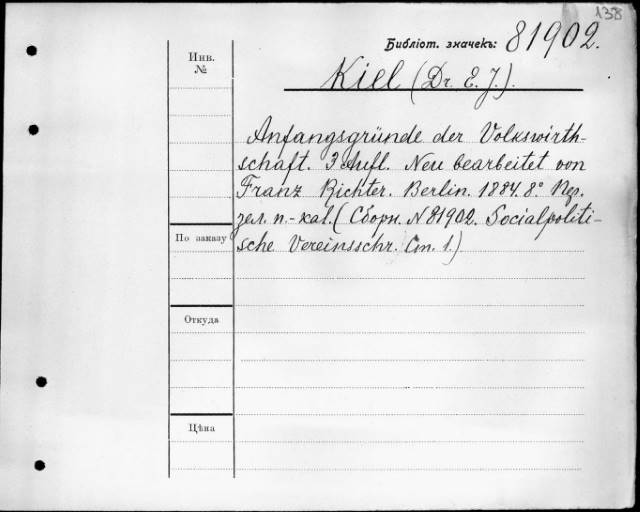 138
Библіот. значекъ: 81902.
Инв.
№
Kiel (Dr. E. J.).
Anfangsgründe der Volkswirth-
schaft. 3 Aufl. Neu bearbeitet von
Franz Richter. Berlin. 1884. 8° Пер.
зел. п.-кал. (Сборн. N 81902. Socialpoliti-
По заказу
sche Vereinsschr. Cт. 1.)
Откуда
Цѣна